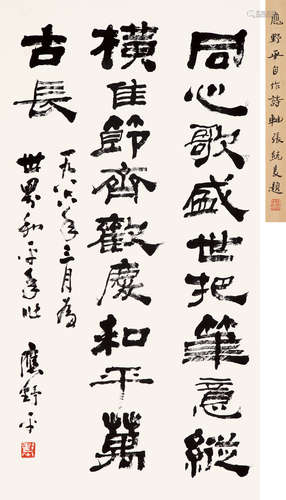 同心歌盛世把筆意縱
橫隹節齊歡慶和平萬
古長
一九八六年三月為
世界和平年作
應野平
應野平自作詩軸張統良題